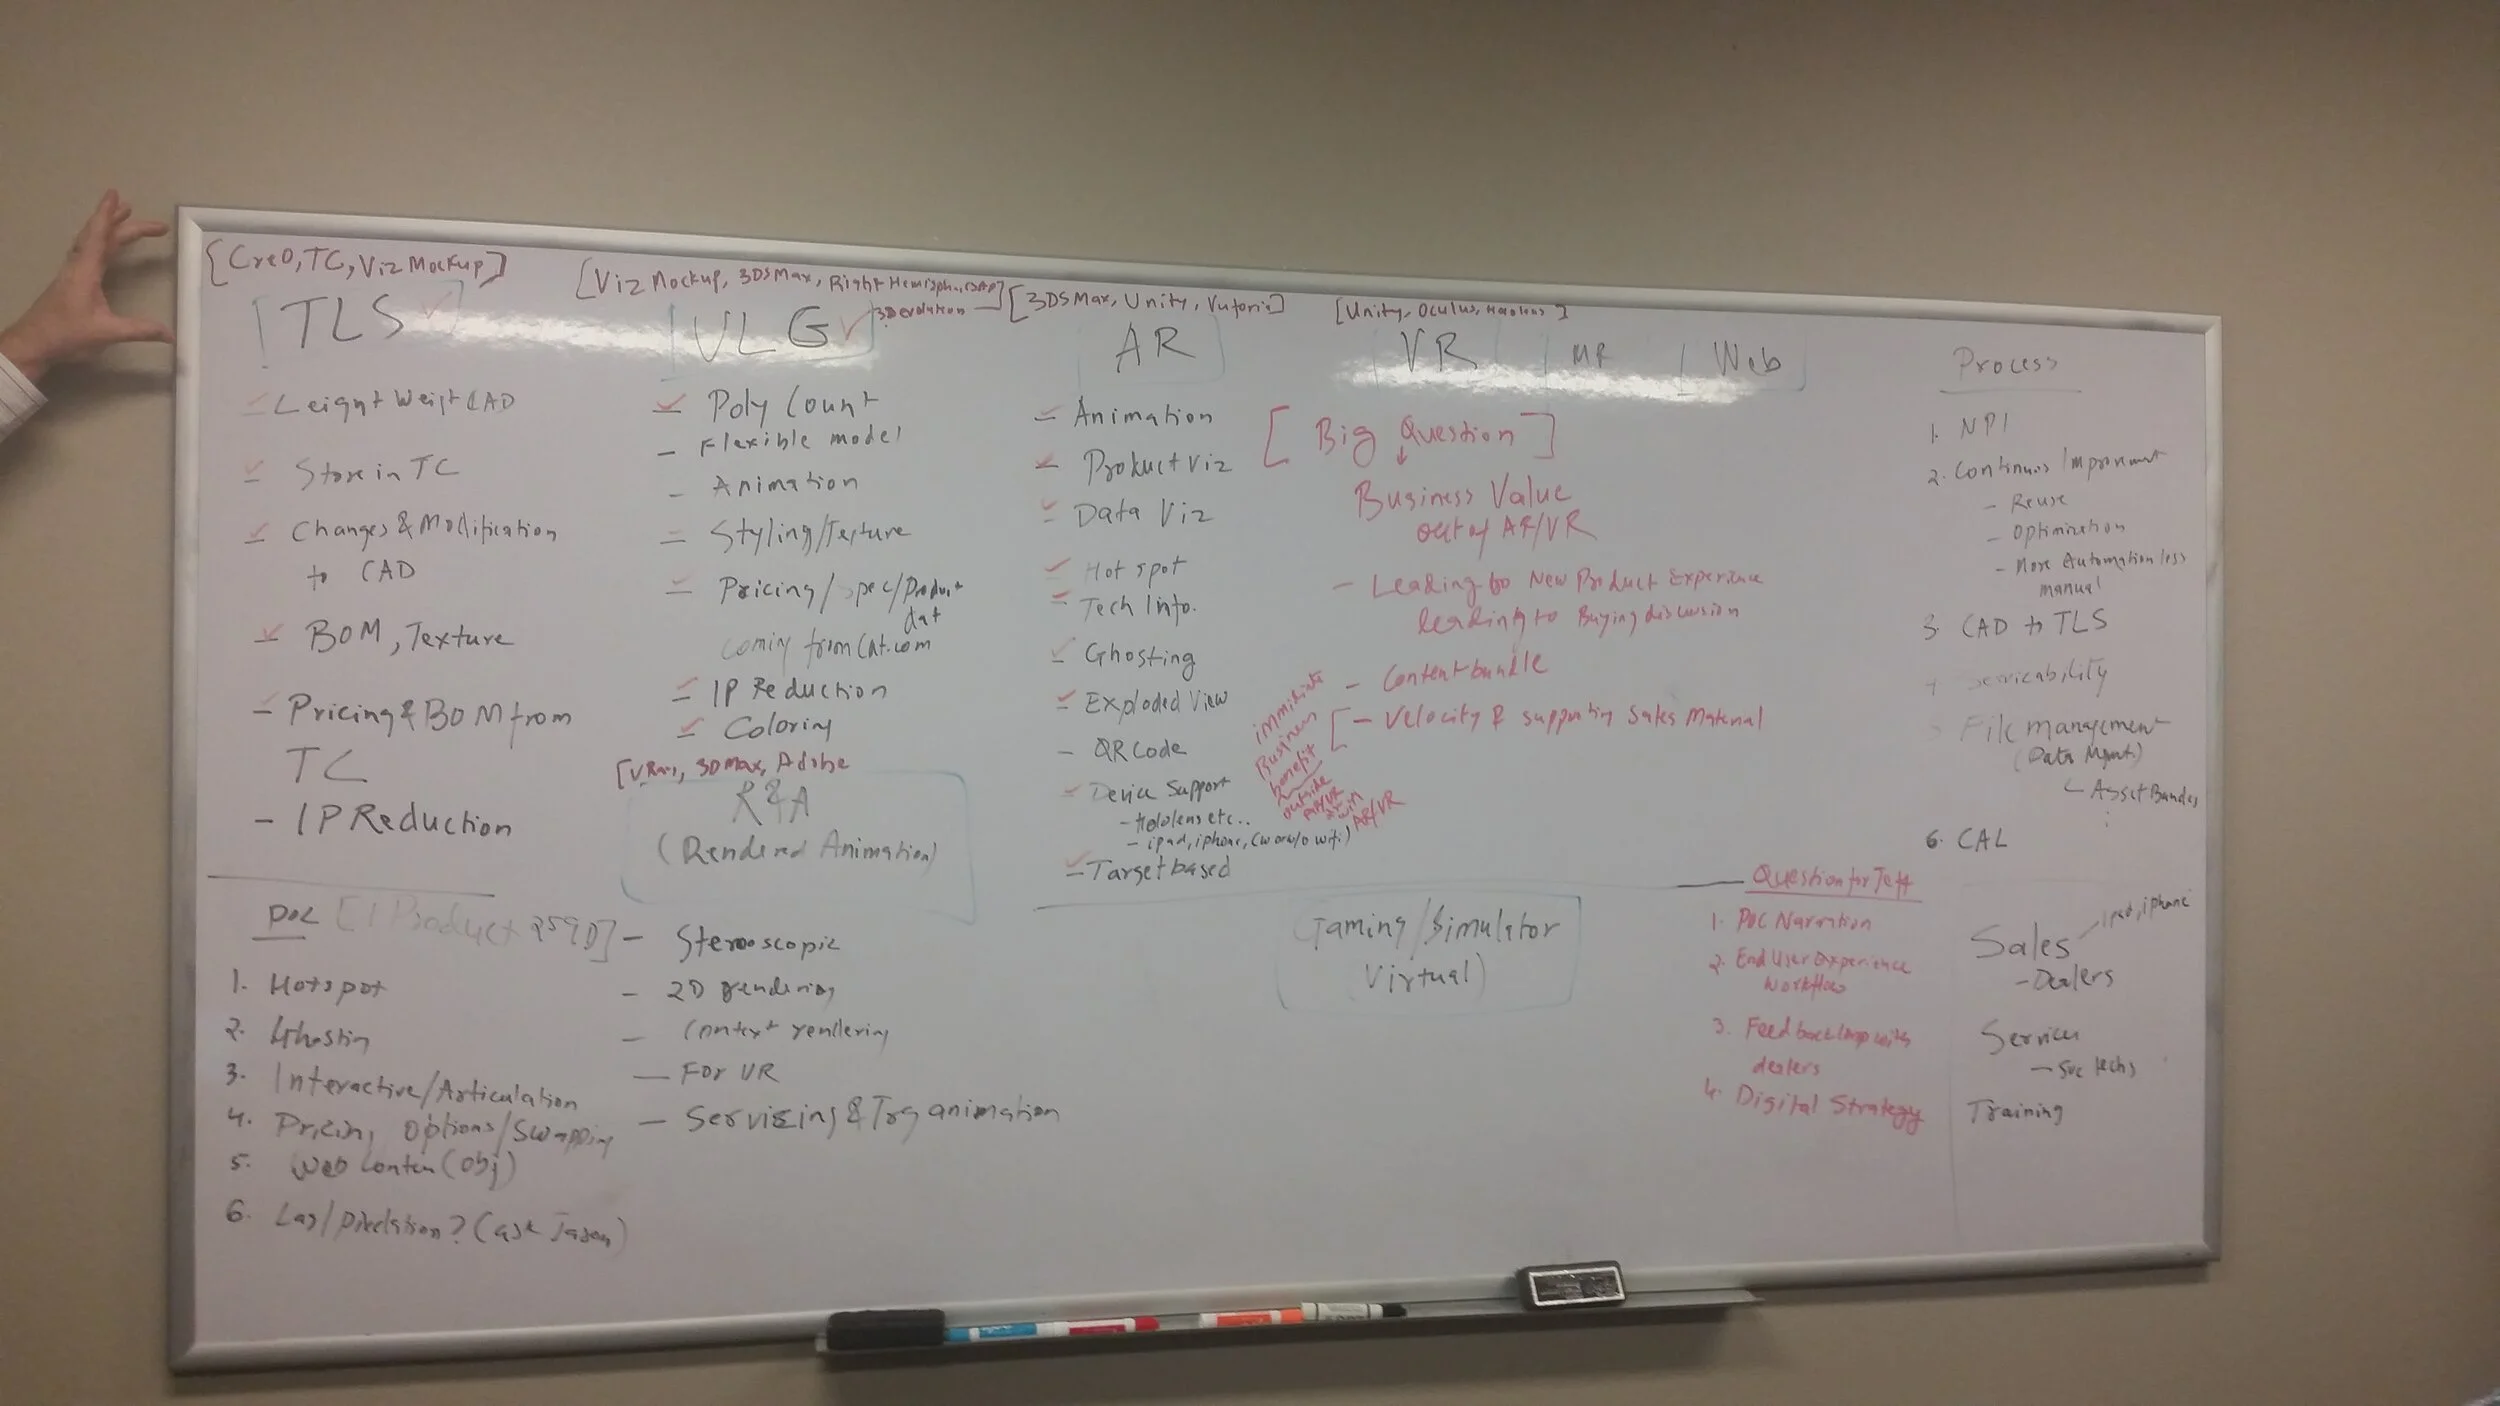 [CreO, TC, Viz Mockup]
TLS
Leignt Weigt CAD
Store in TC
Changes & Modification
to CAD
BOM, Texture
- Pricing & BOM from
TC
- IP Reduction
[Viz Mockup, 3DSMax, Right Hemisphere
VLG
Poly Count
- Flexible model
- Animation
Styling/Texture
Pricing/spec/Product
dat
coming from Cat.com
IP Reduction
Coloring
3DSMax, Adobe
R&A
(Rendered Animation)
- Stereoscopic
- 2D rendering
- Context rendering
- For VR
- Servicing & Trg animation
[3DSMax, Unity, Vuforia]
AR
- Animation
- Product Viz
Data Viz
Hot spot
Tech Info.
Ghosting
Exploded View
- QR Code
Device Support
- Hololens etc..
- ipad, iphone, (w or w/o wifi)
Target based
[Unity, Oculus, Hololens]
VR
MR
Web
[Big Question]
Business Value
out of AR/VR
- Leading to New Product Experience
leading to Buying discussion
- Content bundle
[- Velocity & supporting Sales Material
immidiate
Business
benefit
outside
AR/VR
AR/VR
Gaming/Simulator
Virtual)
Process
1. NPI
2. Continuous Improvement
- Reuse
- Optimization
- More Automation less
manual
3. CAD to TLS
Servicability
File management
(Data Mgmt.)
Asset Bundles
6. CAL
POC [1 Product 259D]
1. Hotspot
2. Ghostin
3. Interactive/Articulation
4. Pricing options/Swapping
5. Web Conten (obj)
6. Lag/pixelation? (ask Jason)
Question for Jeff
1. POC Narration
2. End User Experience
Workflow
3. Feedback loop with
dealers
4. Digital Strategy
Sales
ipad, iphone
- Dealers
Services
- Svc techs
Training